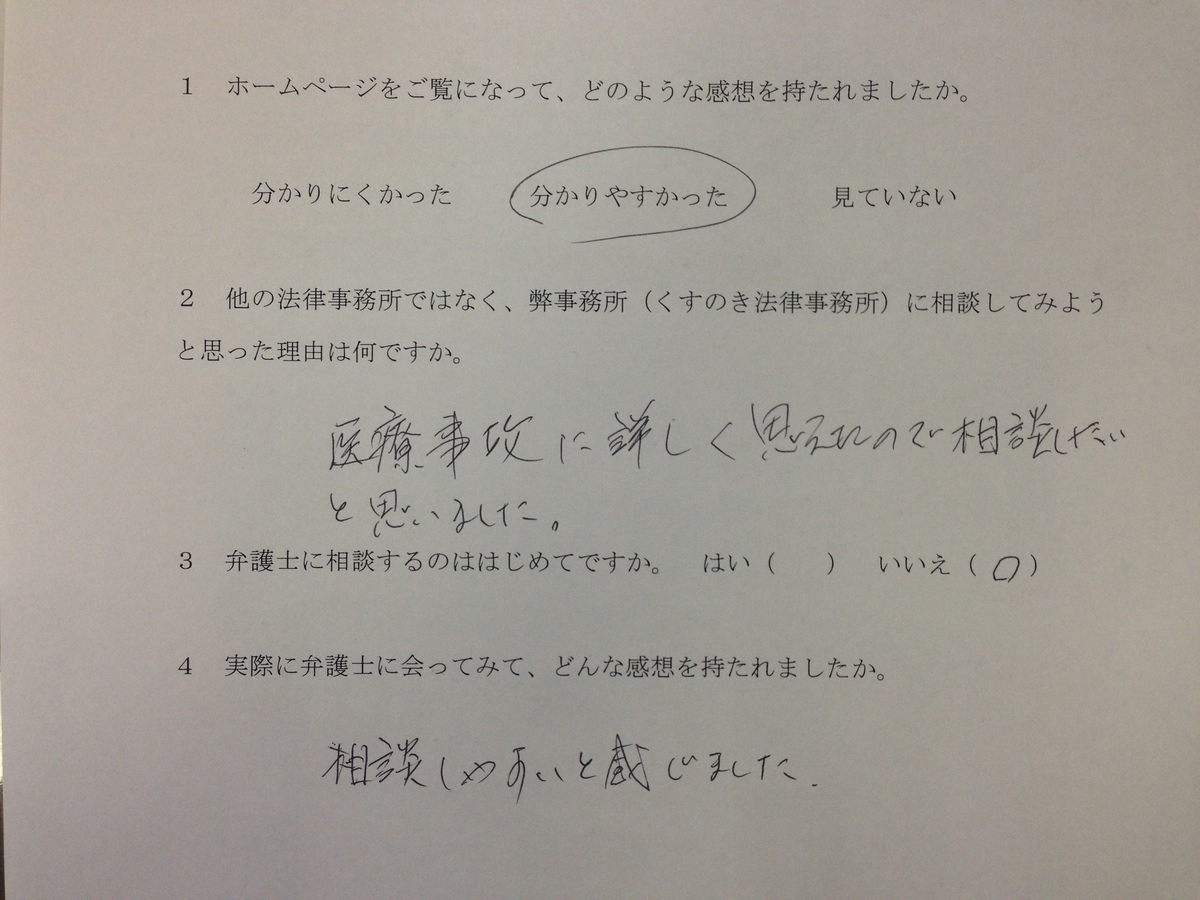 1 ホームページをご覧になって、どのような感想を持たれましたか。
分かりにくかった 分かりやすかった 見ていない
2 他の法律事務所ではなく、弊事務所（くすのき法律事務所）に相談してみよう
と思った理由は何ですか。
医療事故に詳しく思えたので相談したい
と思いました。
3 弁護士に相談するのははじめてですか。 はい（ ） いいえ（○）
4 実際に弁護士に会ってみて、どんな感想を持たれましたか。
相談しやすいと感じました.